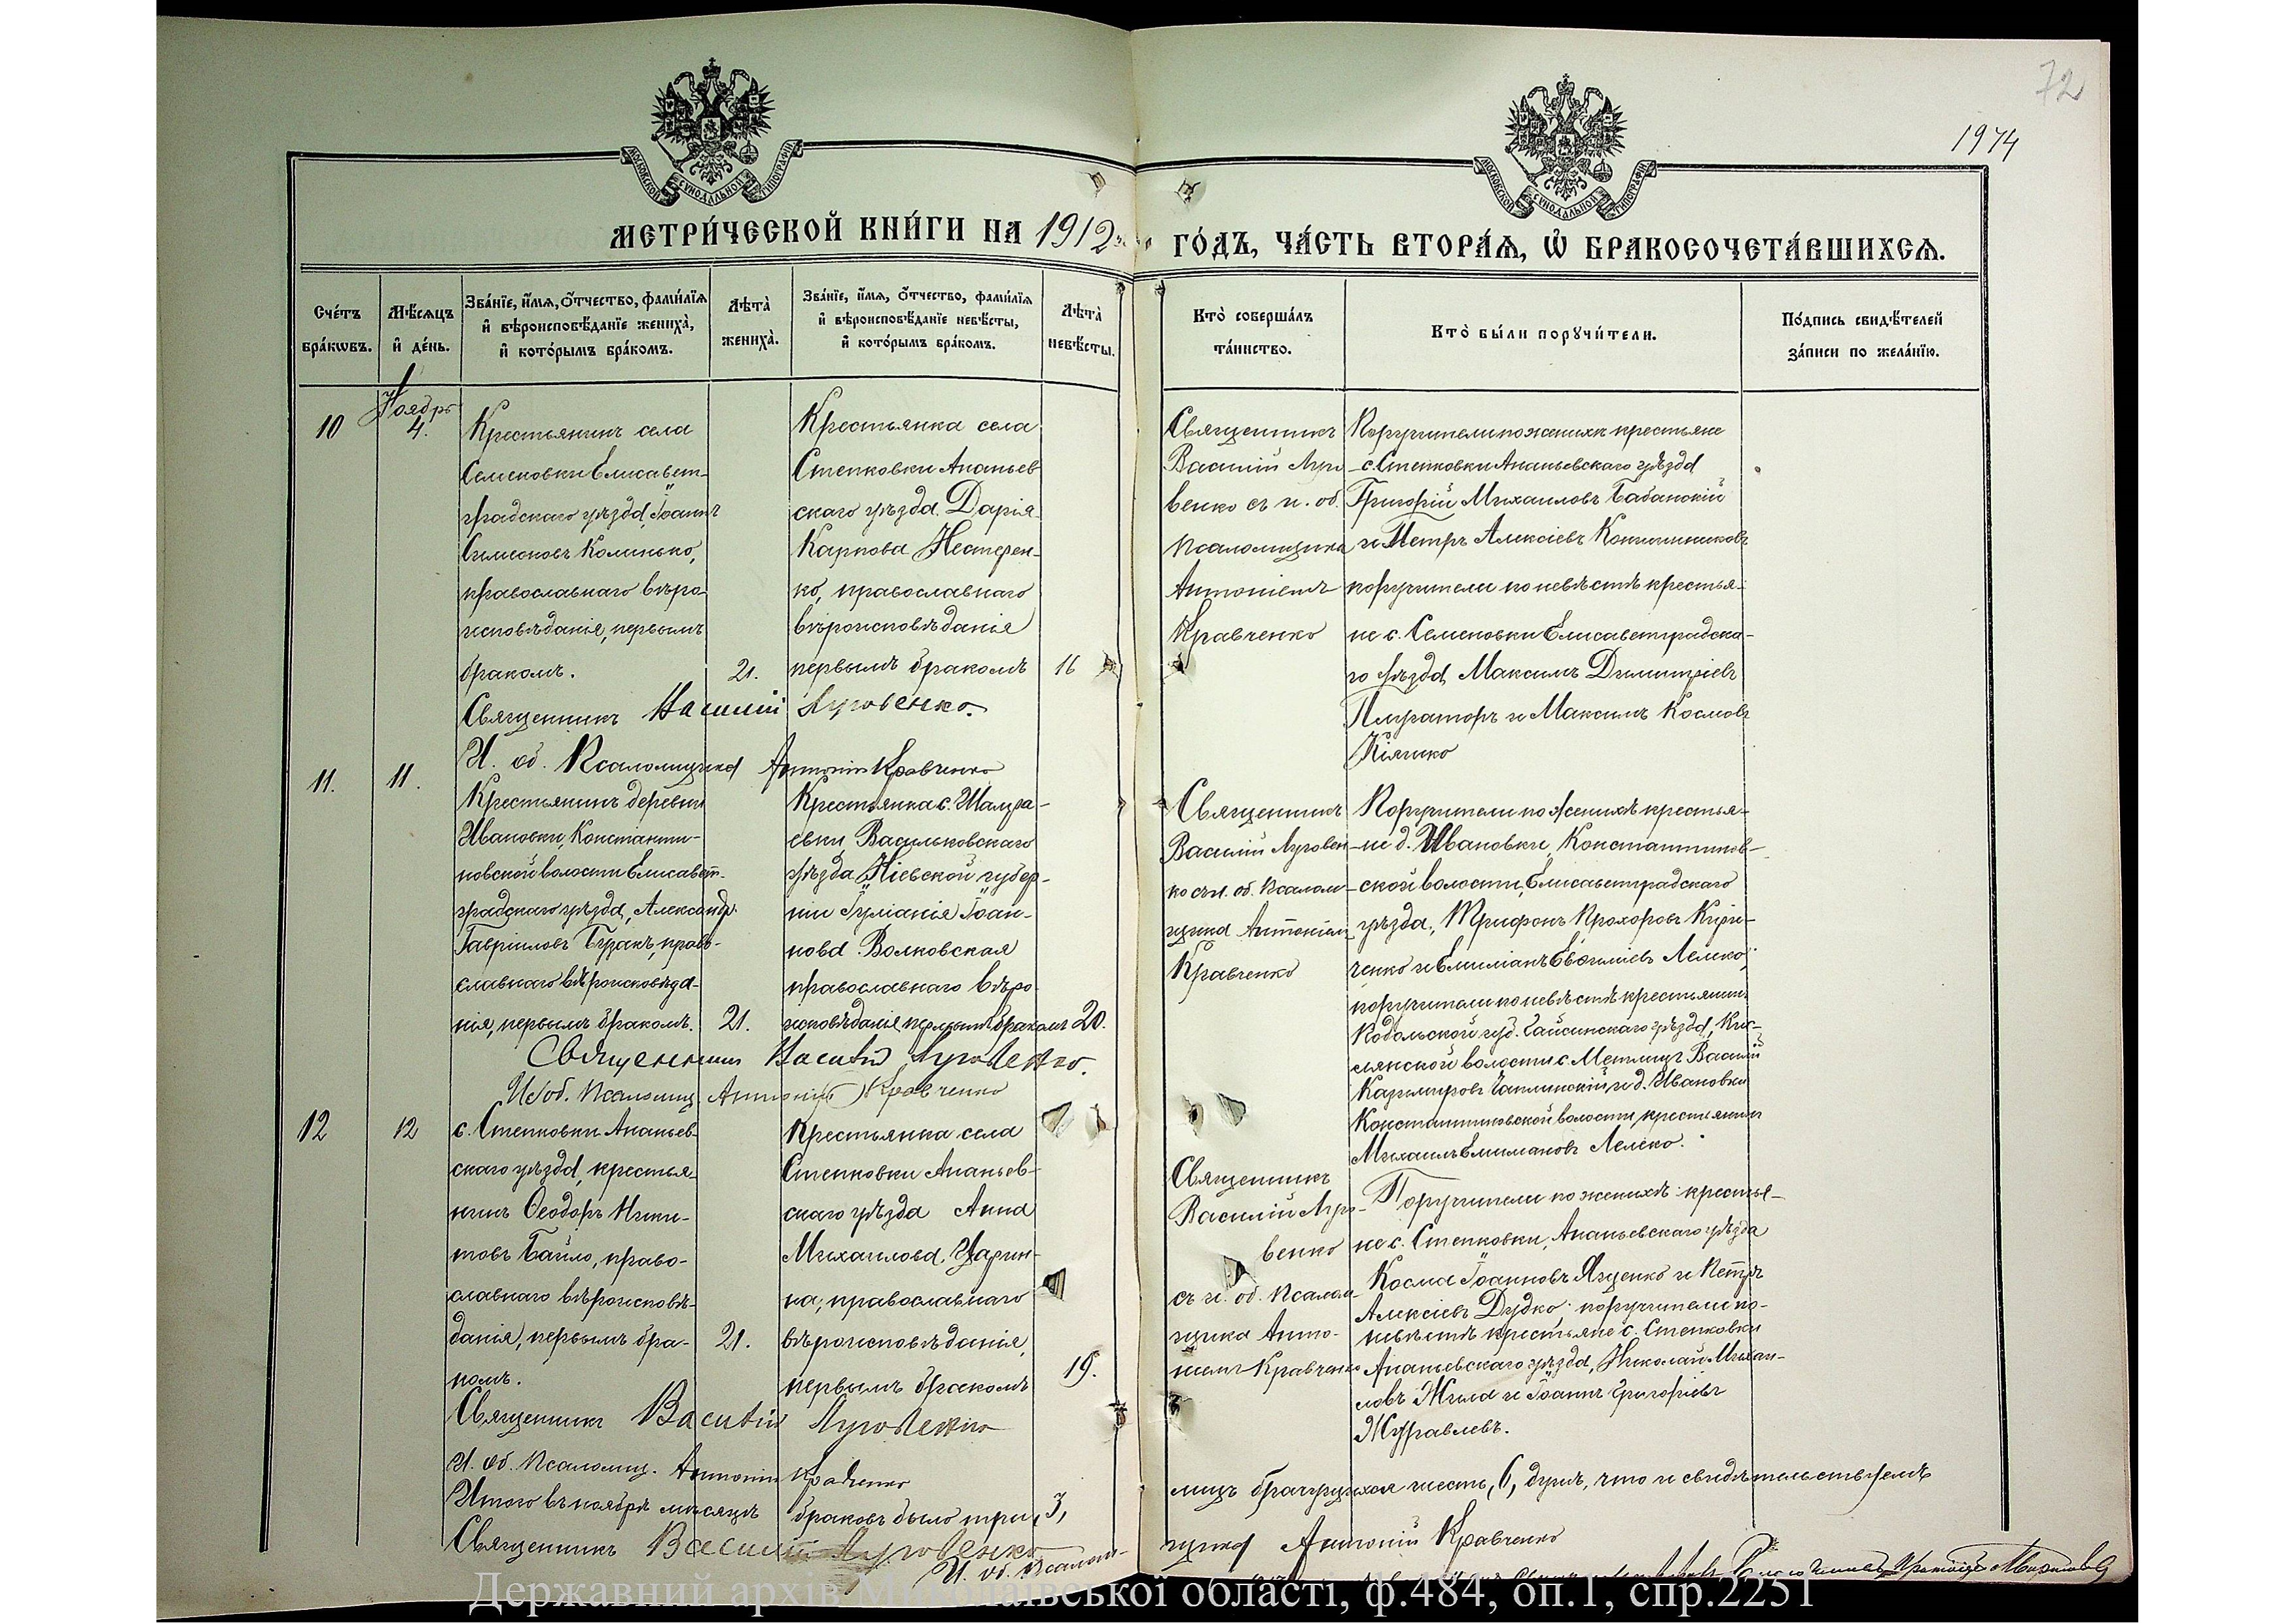 72
1974
МОСКОВСКОЙ СѴНОДАЛЬНОЙ ТИПОГРАФІИ
МОСКОВСКОЙ СѴНОДАЛЬНОЙ ТИПОГРАФІИ
МЕТРИ́ЧЕСКОЙ КНИ́ГИ НА 1912
ГО́ДЪ, ЧА́СТЬ ВТОРА́Ѧ, Ѡ҆ БРАКОСОЧЕТА́ВШИХСѦ.
Сче́тъ бра́кѡвъ.
Мѣ́сѧцъ и҆ де́нь.
Зва́нїе, и҆́мѧ, ѻ҆́тчество, фамѝлїѧ
и҆ вѣроисповѣ́данїе жениха̀,
и҆ кото́рымъ бра́комъ.
Лѣта̀ жениха̀.
Зва́нїе, и҆́мѧ, ѻ҆́тчество, фамѝлїѧ
и҆ вѣроисповѣ́данїе невѣ́сты,
и҆ кото́рымъ бра́комъ.
Лѣта̀ невѣ́сты.
Кто̀ соверша́лъ
та́инство.
Кто̀ бы́ли порꙋчи́тели.
По́дпись свидѣ́телей
за́писи по жела́нїю.
10
Ноябрь
4.
Крестьянинъ села
Семеновки Елисавет-
градскаго уѣзда, Іоаннъ
Симеоновъ Калинько,
православнаго вѣро-
исповѣданія, первымъ
бракомъ.
21.
Крестьянка села
Степковки Ананьев
скаго уѣзда. Дарія
Карпова Нестерен-
ко, православнаго
вѣроисповѣданія
первымъ бракомъ
16
Священникъ
Василій Луго-
венко съ и. об.
Псаломщика
Антоніемъ
Кравченко
Поручители по женихѣ крестьяне
с. Степковки Ананьевскаго уѣзда
Григорій Михаиловъ Бабанскій
и Петръ Алексіевъ
поручители по невѣстѣ крестья-
не с. Семеновки Елисаветградска-
го уѣзда, Максимъ Димитріевъ
и Максимъ Космовъ
Кіяшко
Священникъ Василій Луговенко.
И. об. Псаломщика Антоній Кравченко
11.
11.
Крестьянинъ деревни
Ивановки, Константи-
новской волости Елисавет-
градскаго уѣзда, Александр.
Гавріиловъ Буракъ, право-
славнаго вѣроисповѣда-
нія, первымъ бракомъ.
21.
Крестьянка с.
евки, Васильковскаго
уѣзда, Кіевской губер-
ніи Іуліанія Іоан-
нова Волковская
православнаго вѣро-
исповѣданія первымъ бракомъ
20.
Священникъ
Василій Луговен-
ко съ и. об. Псалом-
щика Антоніем
Кравченко
Поручители по женихѣ крестья-
не д. Ивановки, Константинов-
ской волости, Елисаветградскаго
уѣзда, Трифонъ Прохоровъ Кири-
ченко и Емиліанъ Лелеко;
поручители по невѣстѣ крестьянинъ
Подольской губ. Гайсинскаго уѣзда,
волости с. Метлинцъ Василій
Казимировъ Чаплинскій и д. Ивановки
Константиновской волости, крестьянинъ
Михаилъ Емиліановъ Лелеко.
Священникъ Василій Луговенко.
И. об. Псаломщ. Антоній Кравченко
12
12
с. Степковки Ананьев-
скаго уѣзда, крестья-
нинъ Ѳеодоръ Ники-
товъ Байло, право-
славнаго вѣроисповѣ-
данія, первымъ бра-
комъ.
21.
Крестьянка села
Степковки Ананьев-
скаго уѣзда Анна
Михаилова,
православнаго
вѣроисповѣданія,
первымъ бракомъ
19.
Священникъ
Василій Луго-
венко
съ и. об. Псалом-
щика Анто-
ніемъ Кравченко
Поручители по женихѣ: крестья-
не с. Степковки, Ананьевскаго уѣзда
Косма Іоанновъ Яценко и Петръ
Алексіевъ Дудко; поручители по
невѣстѣ крестьяне с. Степковки
Ананьевскаго уѣзда, Николай Михаи-
ловъ Жила и Іоаннъ Григоріевъ
Журавлевъ.
Священникъ Василій Луговенко
И. об. Псаломщ. Антоній Кравченко
Итого въ ноябрѣ мѣсяцѣ браковъ было три, 3,
лицъ брачущихся шесть, 6, душъ, что и свидѣтельствуемъ
Священникъ Василій Луговенко
И. об. Псалом-
щика Антоній Кравченко
Державний архів Миколаївської області, ф.484, оп.1, спр.2251